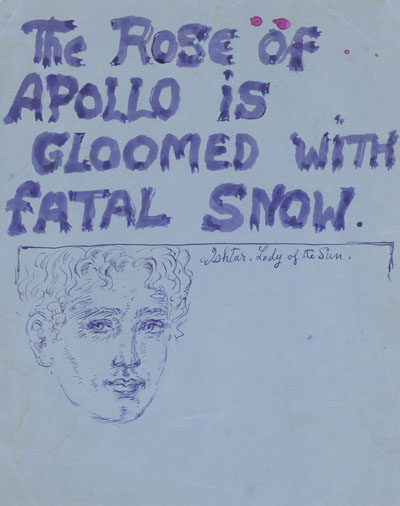 The ROSE of
APOLLO is
GLOOMED WITH
fATAL SNOW.
Ishtar. Lady of the Sun.